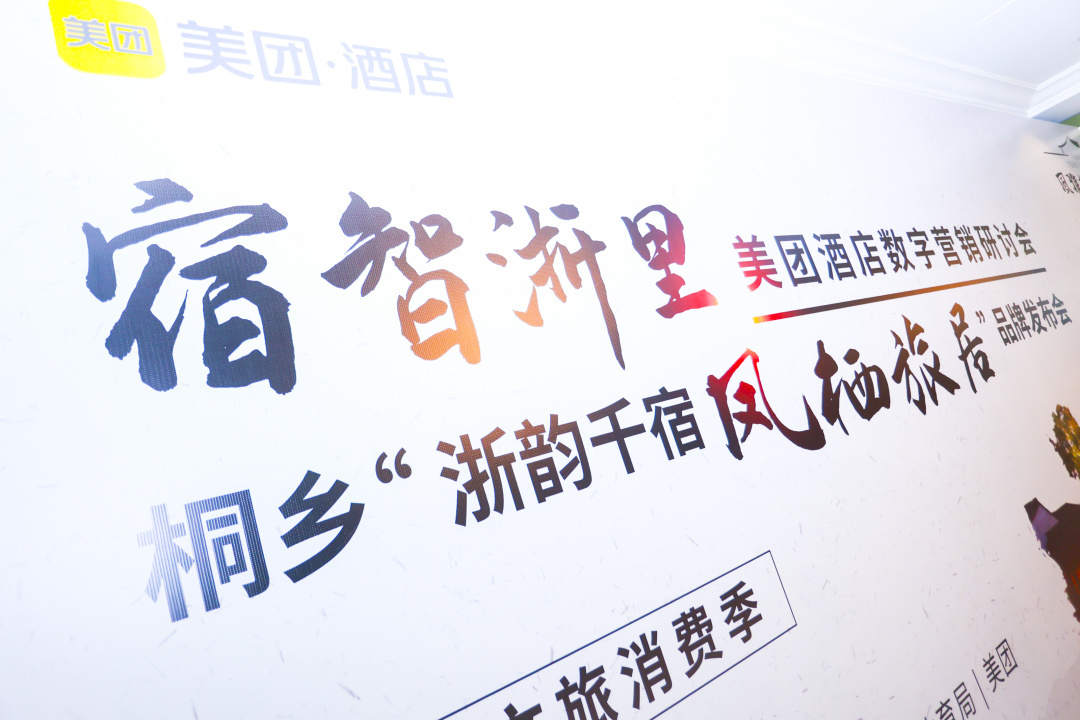 美团 美团·酒店
宿智浙里 美团酒店数字营销研讨会
桐乡“浙韵千宿凤栖旅居”品牌发布会
文旅消费季
育局 | 美团